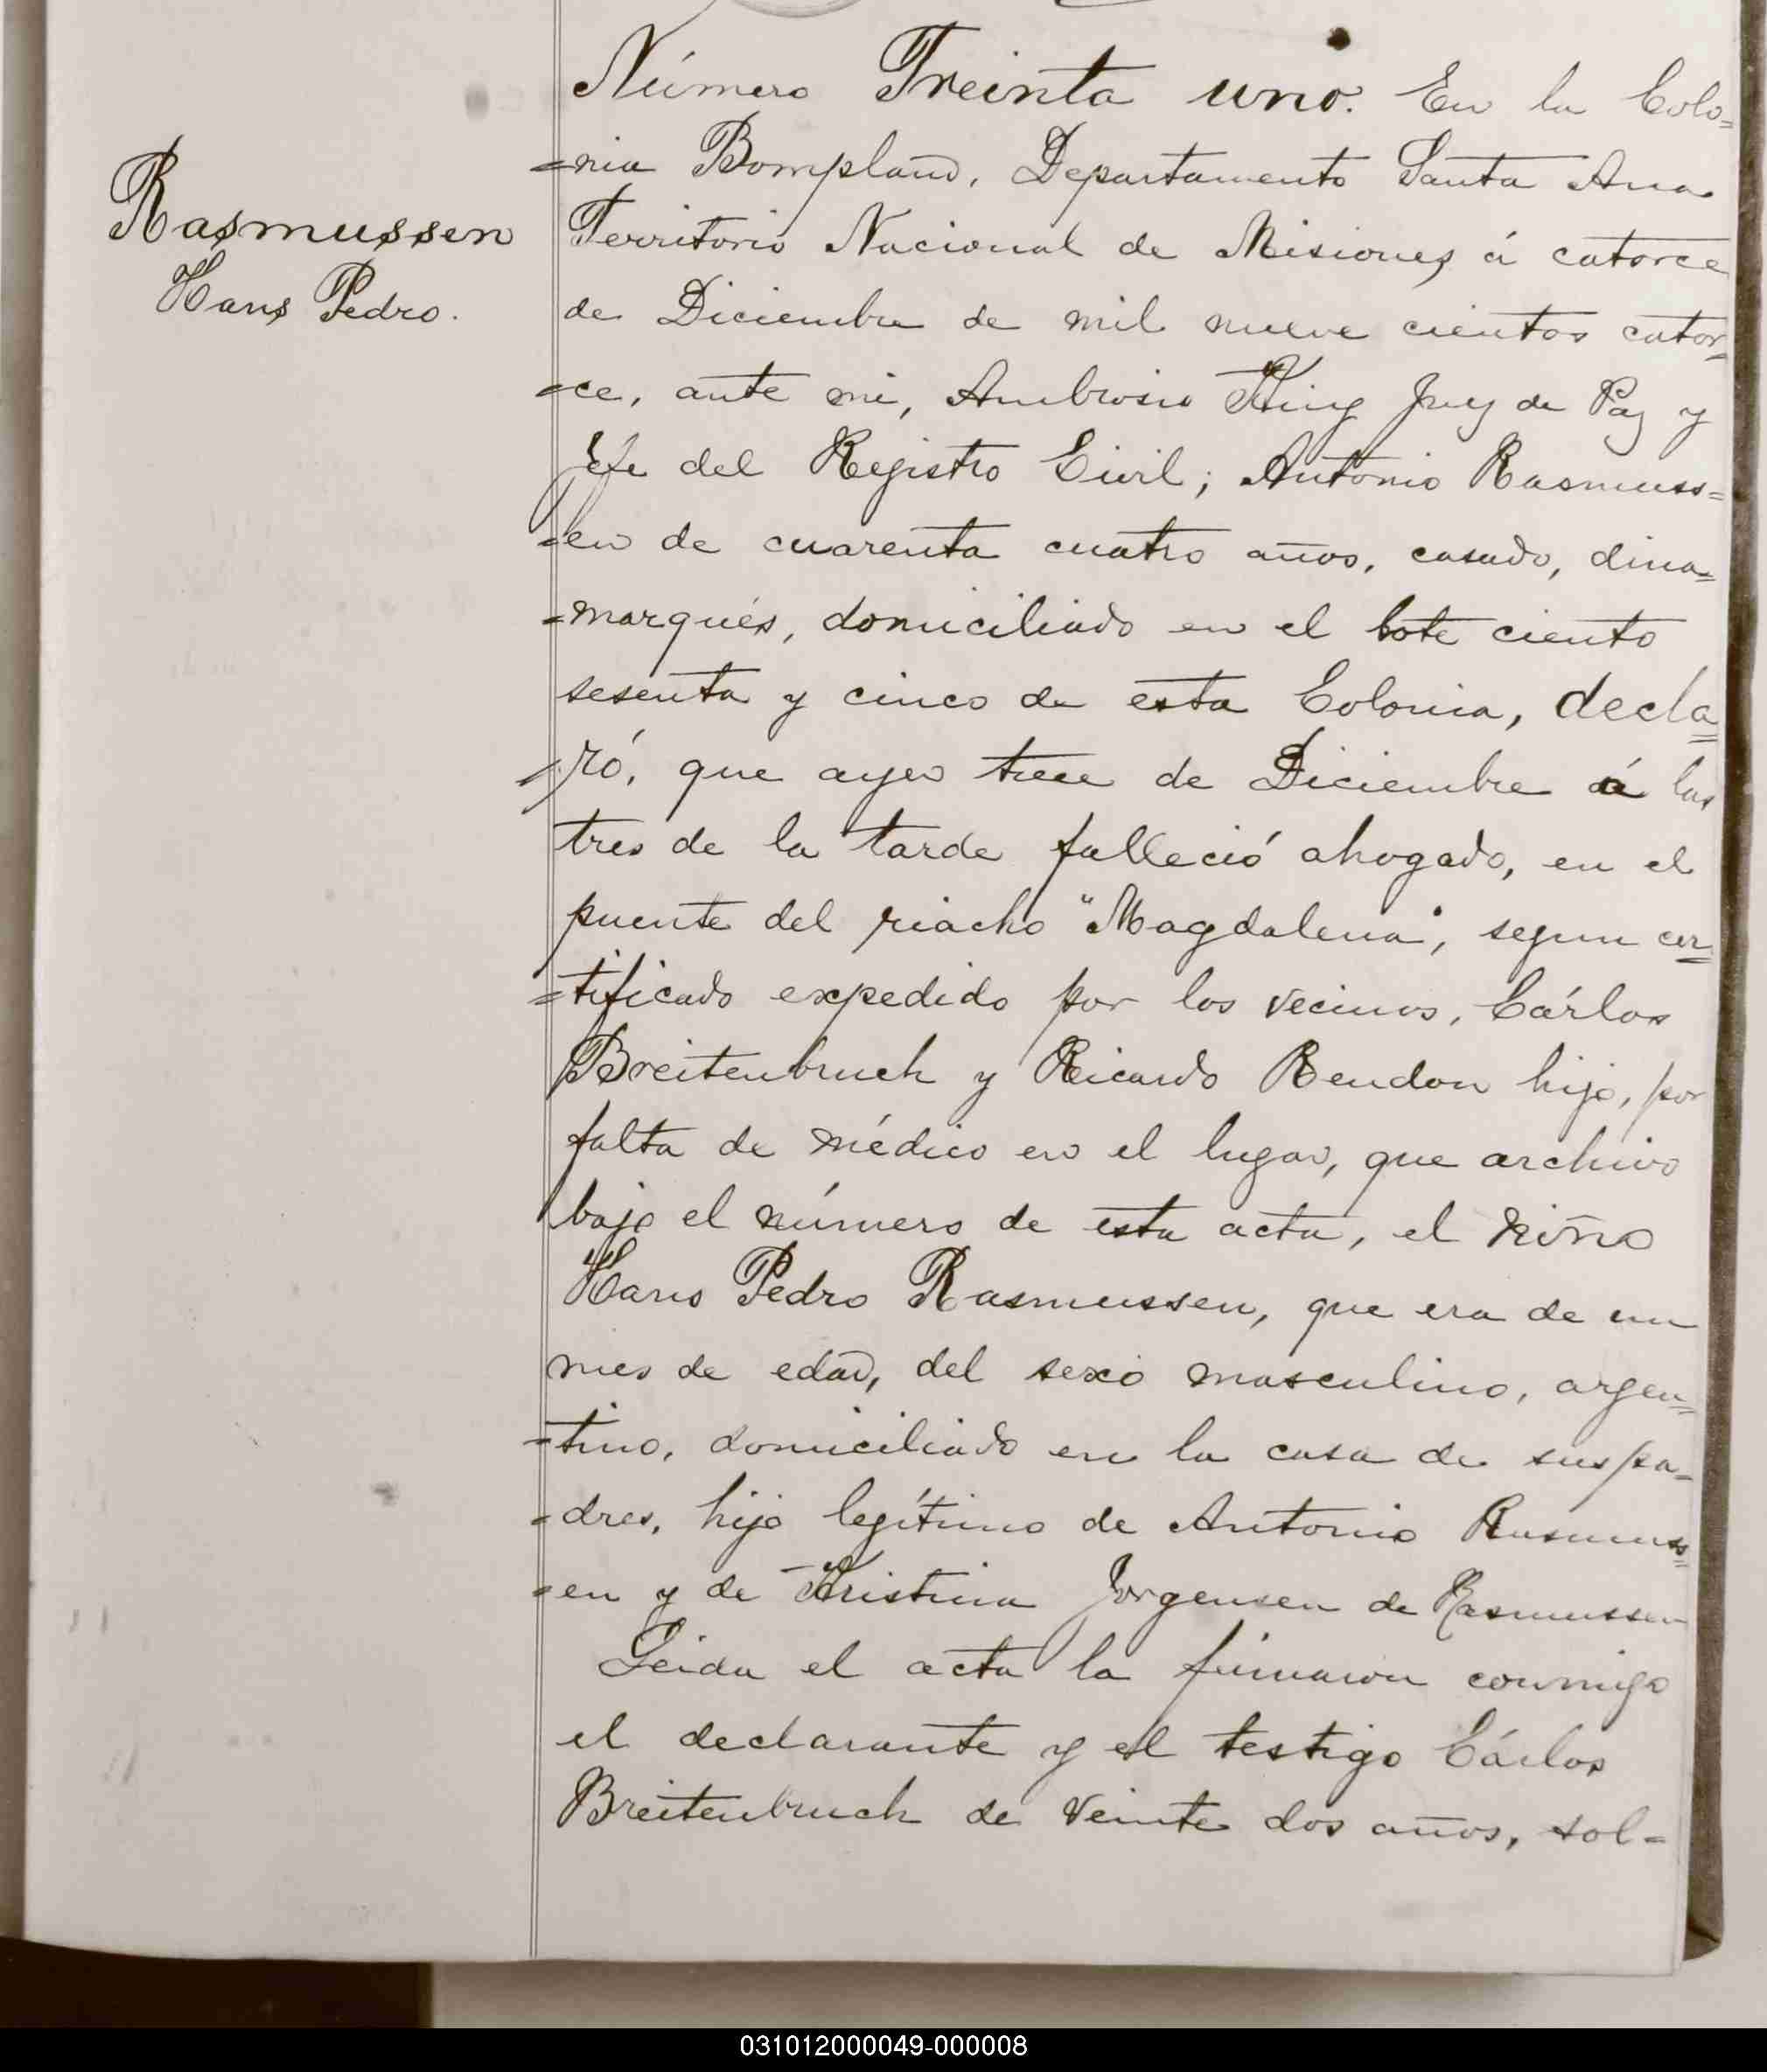 Rasmussen
Hans Pedro.
Número Treinta uno. En la Colo=
=nia Bompland, Departamento Santa Ana
Territorio Nacional de Misiones á catorce
de Diciembre de mil nueve cientos cator=
=ce, ante mi, Ambrosio King Juez de Paz y
Jefe del Registro Civil; Antonio Rasmuss=
=en de cuarenta cuatro años, casado, dina=
=marqués, domiciliado en el lote ciento
sesenta y cinco de esta Colonia, decla=
=ró, que ayer trece de Diciembre á las
tres de la tarde falleció ahogado, en el
puente del riacho "Magdalena", segun cer=
=tificado expedido por los vecinos, Cárlos
Breitenbruch y Ricardo Rendon hijo, por
falta de médico en el lugar, que archivo
bajo el número de esta acta, el niño
Hans Pedro Rasmussen, que era de un
mes de edad, del sexo masculino, argen=
=tino, domiciliado en la casa de sus pa=
=dres, hijo legítimo de Antonio Rasmuss=
=en y de Kristina Jorgensen de Rasmussen
Leida el acta la firmaron conmigo
el declarante y el testigo Cárlos
Breitenbruch de veinte dos años, sol=
031012000049-000008